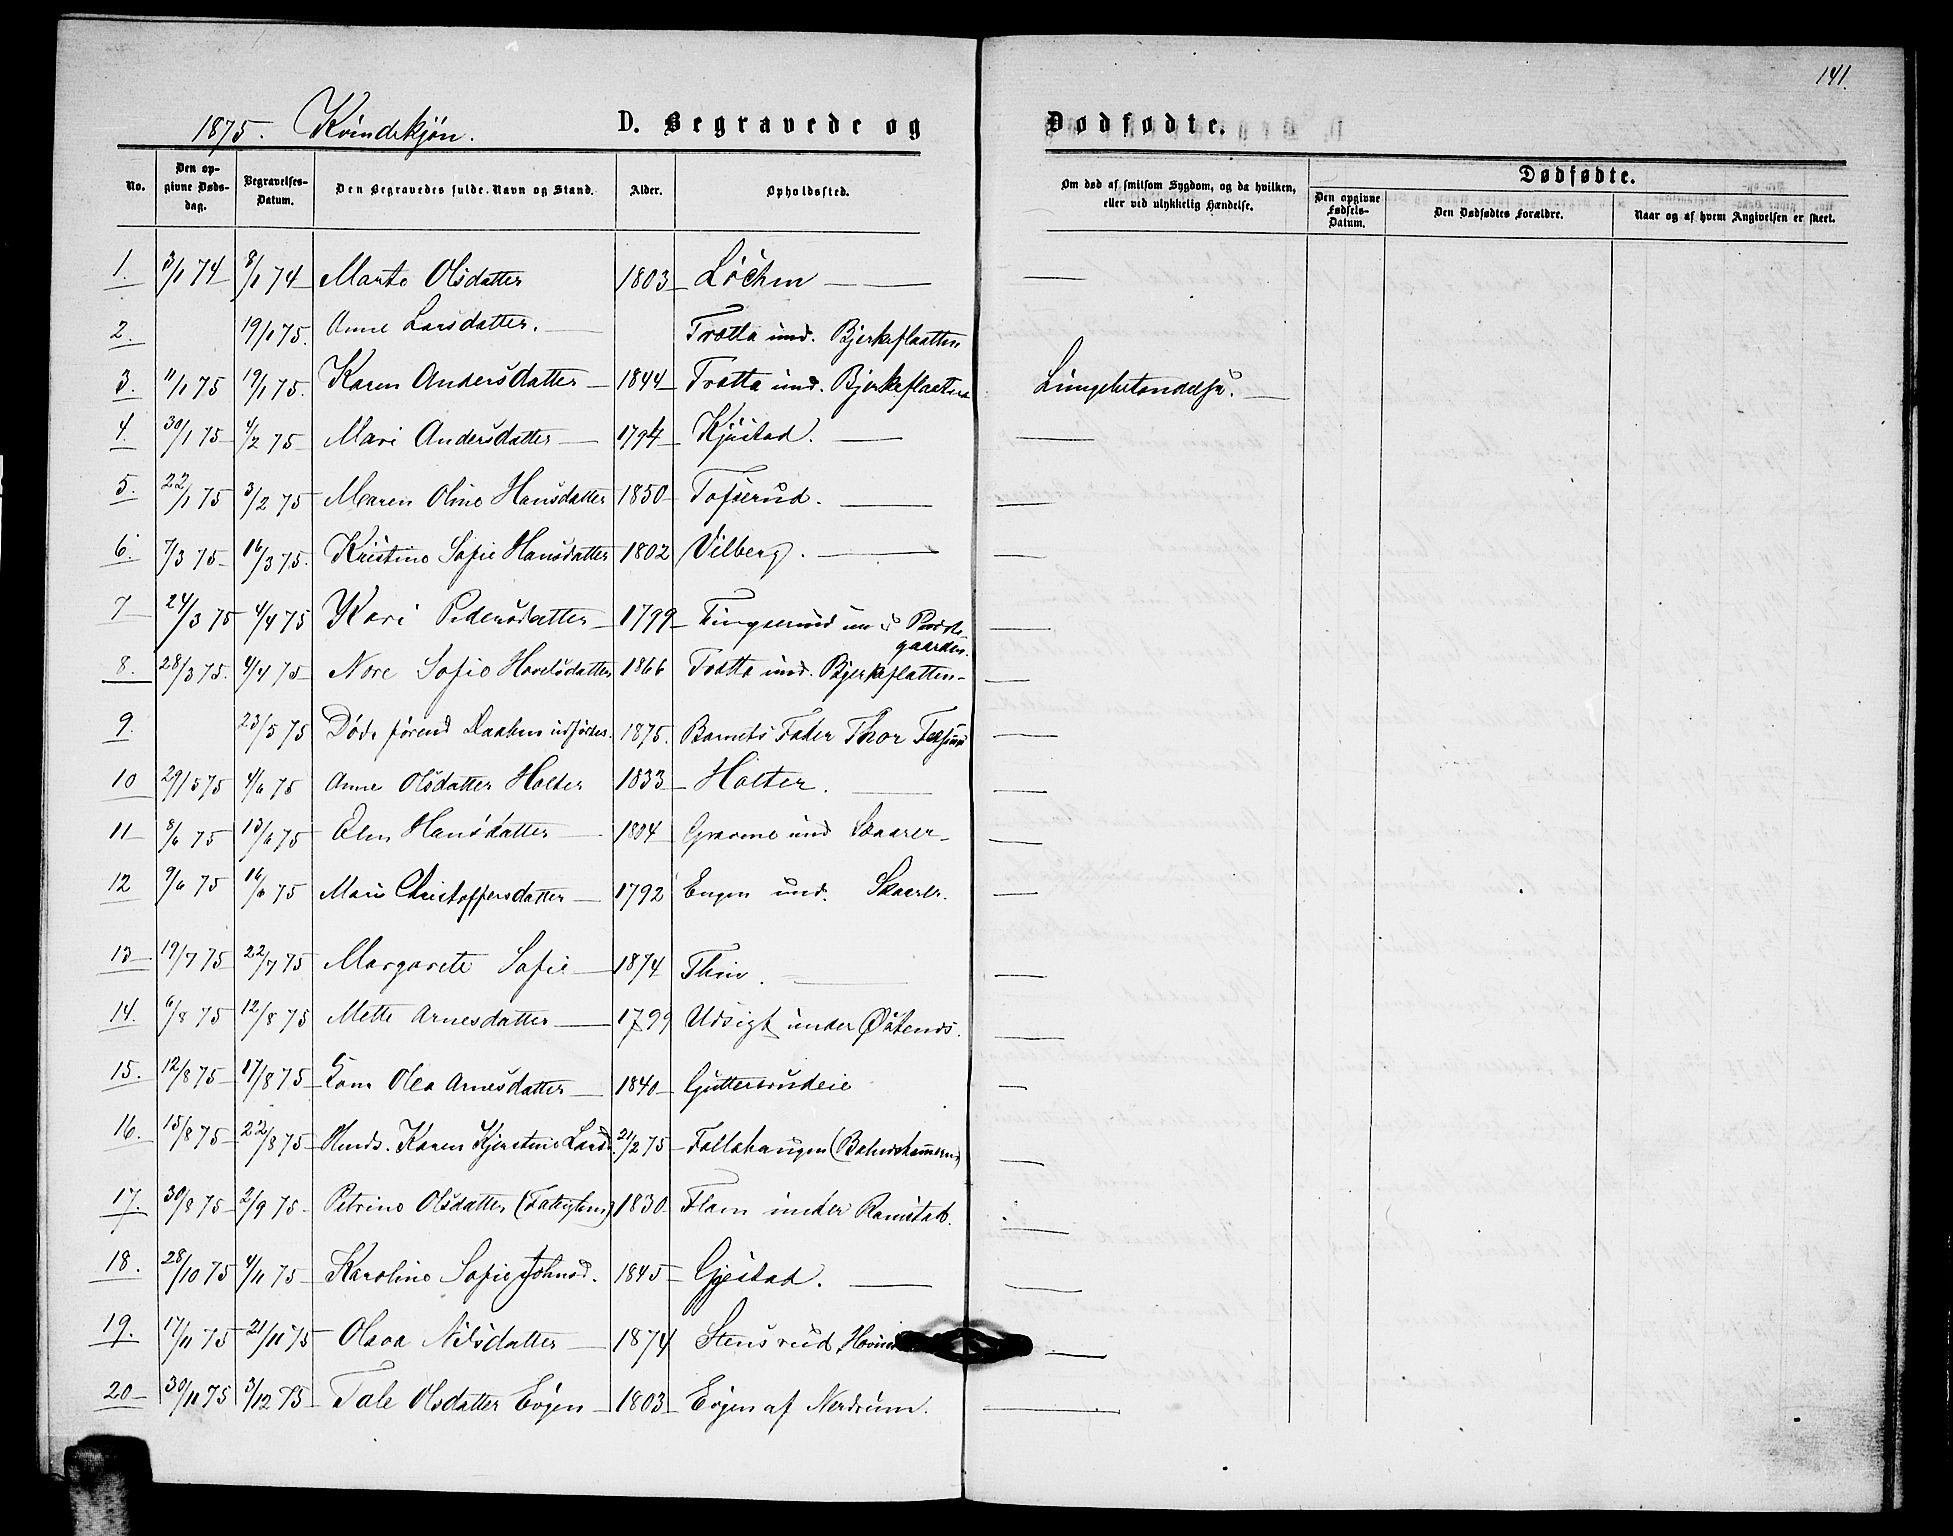 141.
1875. Kvindekjøn. D. Begravede og Dødfødte.
No. Den opgivne Dødsdag. Begravelses-Datum. Den Begravedes fulde Navn og Stand. Alder. Opholdssted. Om død af smitsom Sygdom, og da hvilken, eller ved ulykkelig Hændelse. Dødfødte. Den opgivne Fødsels-Datum. Den Dødfødtes Forældre. Naar og af hvem Angivelsen er skeet.
1. 3/1 74 8/1 74 Marte Olsdatter 1803 Løchen
2. 19/1 75. Anne Larsdatter. Trætta und. Bjerkeflaatten
3. 11/1 75 19/1 75. Karen Andersdatter 1844 Trætta und. Bjerkeflaatten Lungebetændelse.
4. 30/1 75 4/2 75 Mari Andersdatter 1794 Kjøstad.
5. 22/1 75 3/2 75 Maren Oline Hansdatter 1850 Tofserud.
6. 7/3 75 16/3 75. Kristine Sofie Hansdatter 1802 Vilberg.
7 24/3 75 4/4 75 Kari Pedersdatter 1799 Tingserud und Præstegaarden.
8. 28/3 75. 4/4 75 Nore Sofie Hovelsdatter 1866 Trætta und. Bjerkeflatten
9. 23/5 75 Døde førend Daaben udførtes. 1875. Barnets Fader Thor
10 29/5 75 4/6 75 Anne Olsdatter Holter 1833 Holter.
11 8/6 75 13/6 75 Elen Hansdatter 1804 und Skaarer
12 9/6 75 16/6 75 Mari Christoffersdatter 1792 Engen und. Skaarer.
13 19/7 75 22/7 75 Margarete Sofie 1874
14. 6/8 75 12/8 75 Mette Arnesdatter 1799 Udsigt under Østends.
15. 12/8 75 17/8 75 Olea Arnesdatter 1840 Guttersrudeie
16. 15/8 75 22/8 75 Karen Kjerstine Larsd. 21/2 75 Fallahaugen
17. 30/8 75 2/9 75 Petrine Olsdatter (Fattiglem) 1830 Flam under Ramstad.
18. 28/10 75 4/11 75 Karoline Sofie Johnsd. 1845 Gjestad.
19. 17/11 75 21/11 75 Olava Nilsdatter 1874 Stensrud,
20 30/11 75 3/12 75 Tale Olsdatter Evjen 1803 Evjen af Nerdrum.